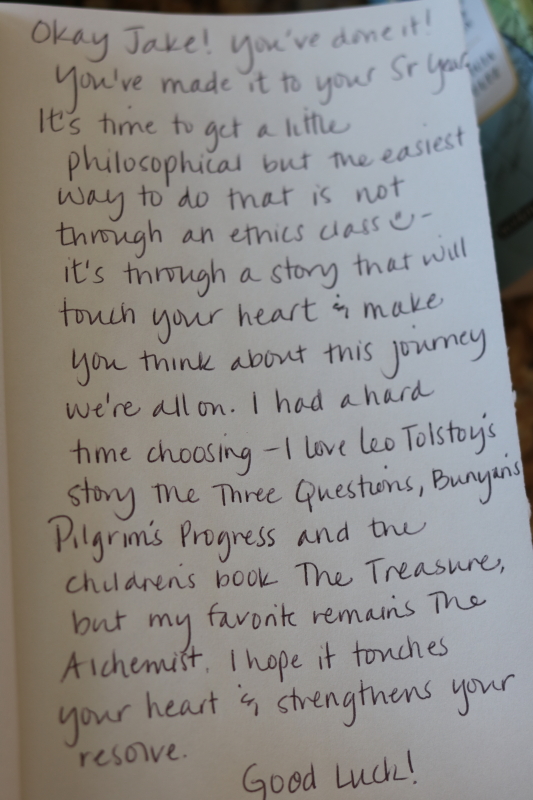 Okay Jake! You've done it!
You've made it to your Sr Year.
It's time to get a little
philosophical but the easiest
way to do that is not
through an ethics class -
it's through a story that will
touch your heart & make
you think about this journey
we're all on. I had a hard
time choosing - I love Leo Tolstoy's
story The Three Questions, Bunyan's
Pilgrim's Progress and the
children's book The Treasure,
but my favorite remains The
Alchemist. I hope it touches
your heart & strengthens your
resolve.
Good Luck!